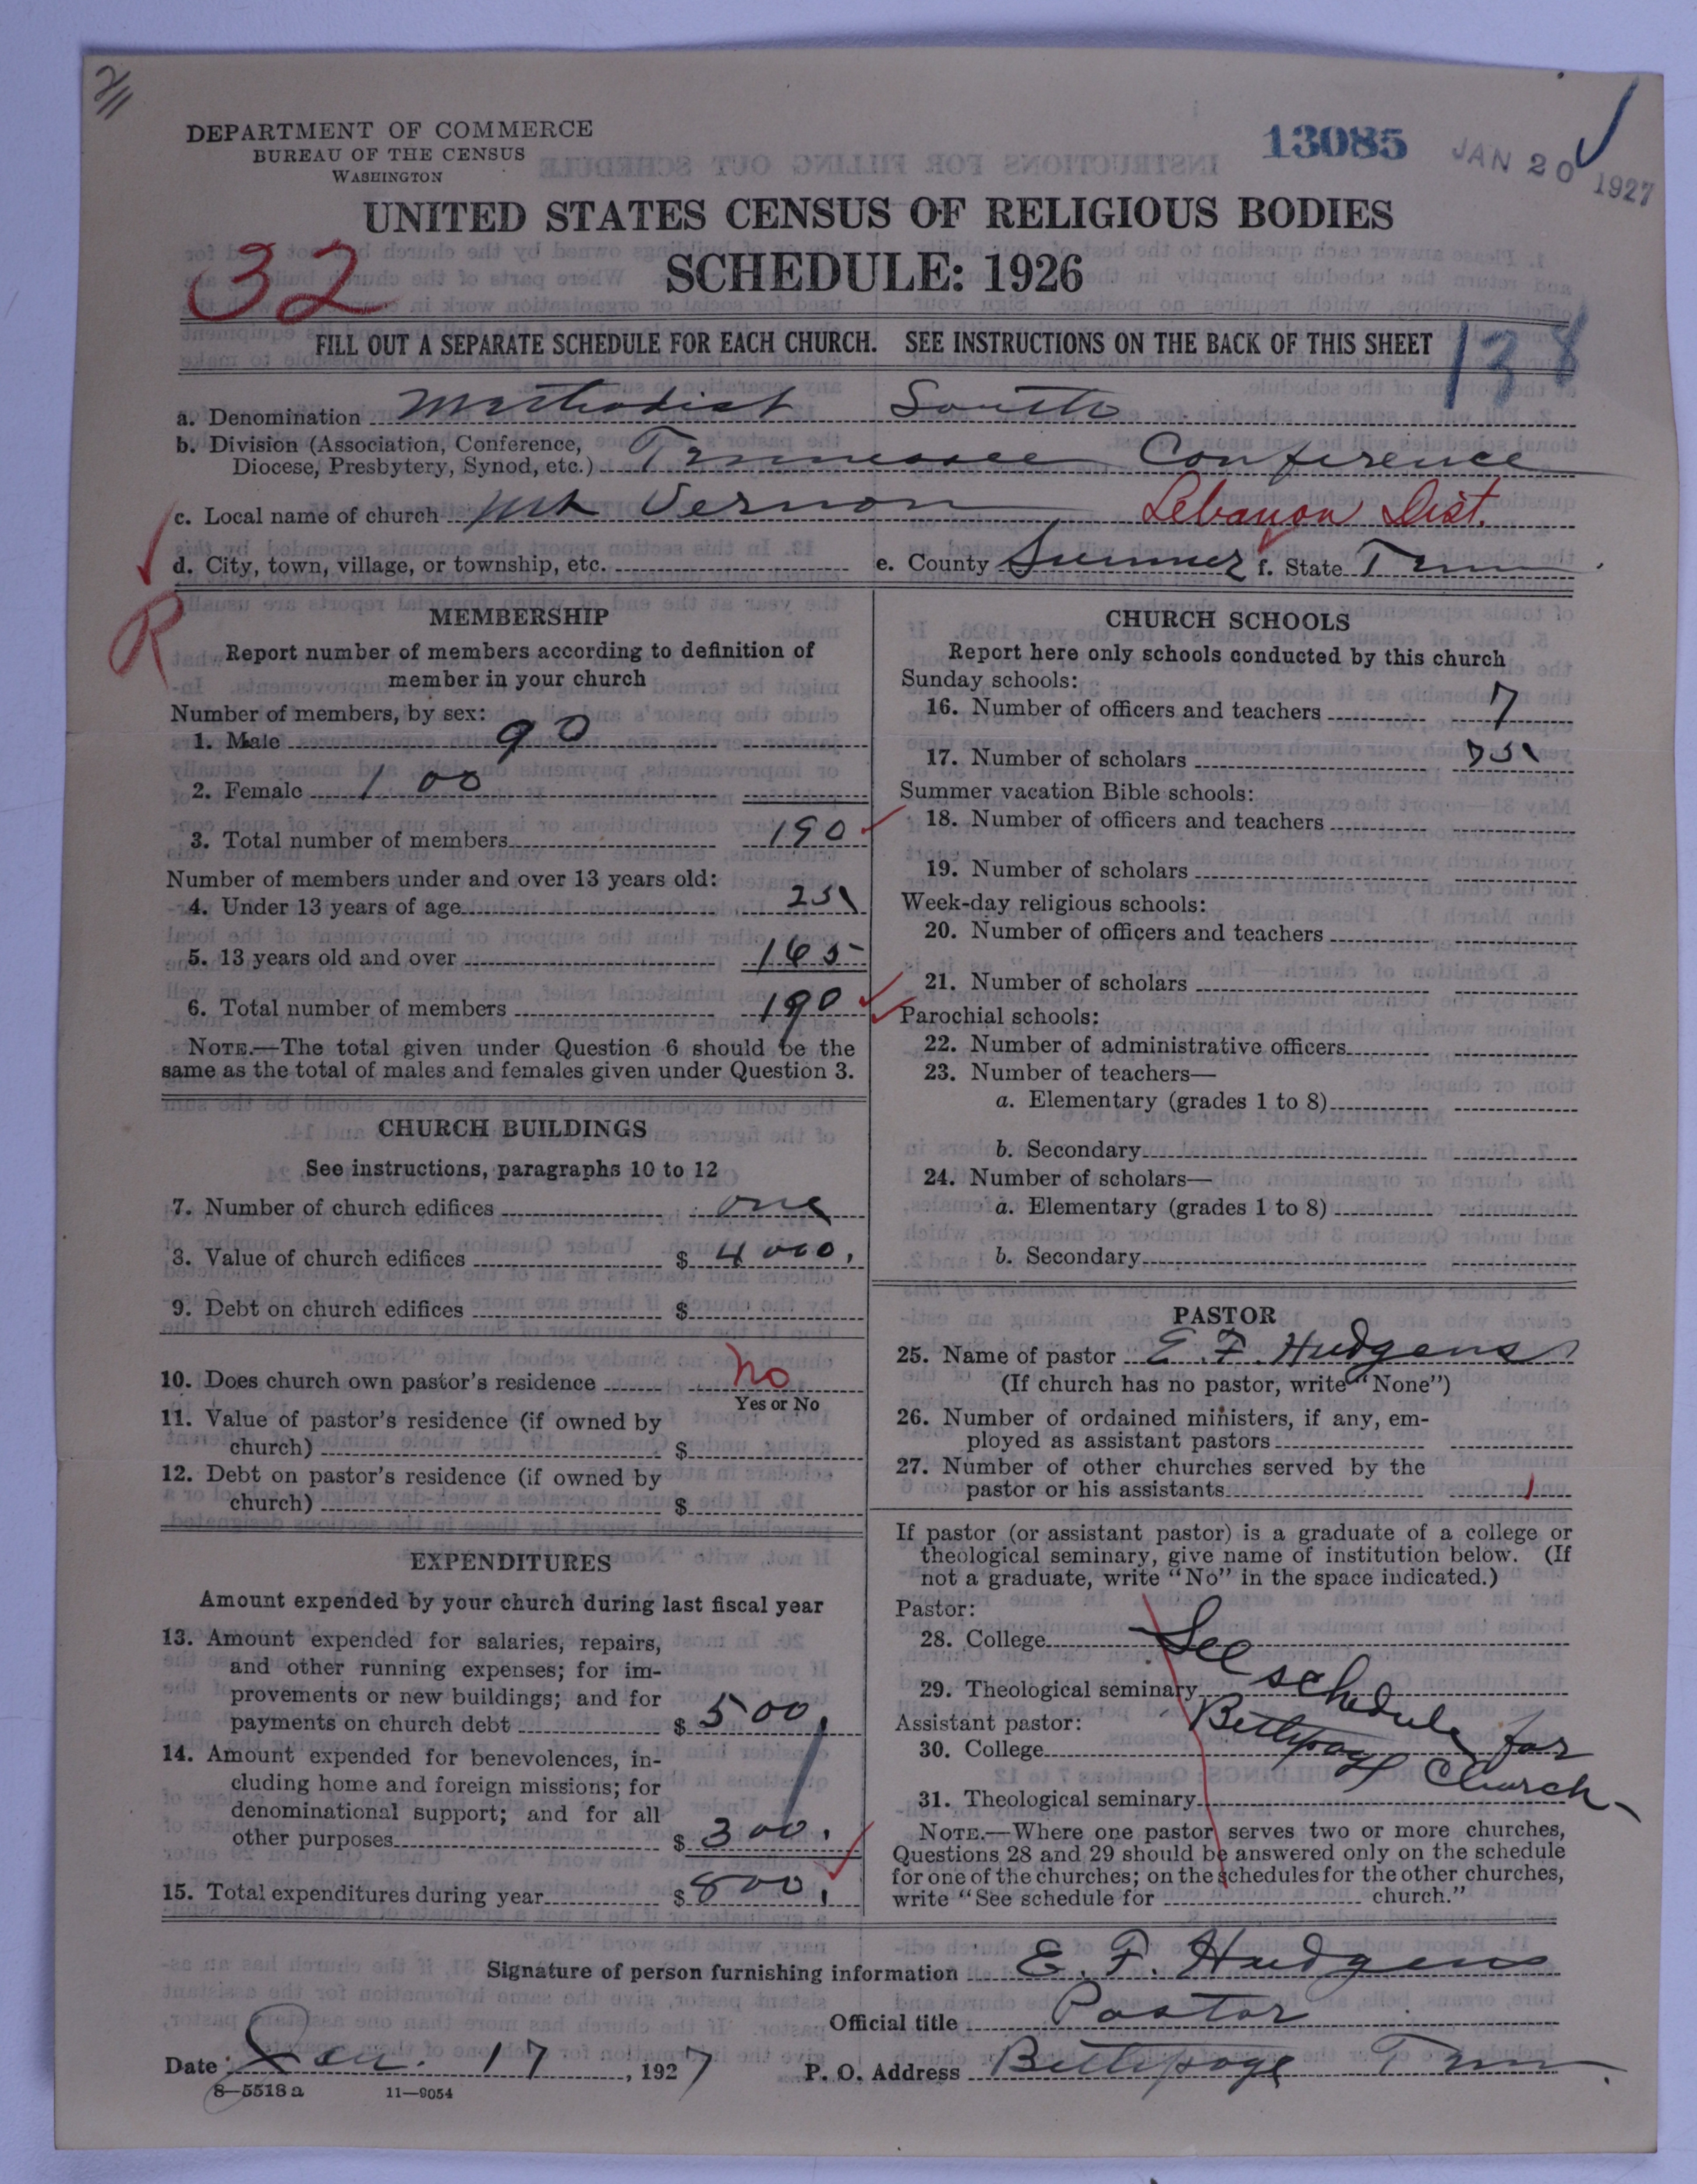 DEPARTMENT OF COMMERCE
BUREAU OF THE CENSUS
WASHINGTON
13085
JAN 20 1927
UNITED STATES CENSUS OF RELIGIOUS BODIES
32
SCHEDULE: 1926
FILL OUT A SEPARATE SCHEDULE FOR EACH CHURCH. SEE INSTRUCTIONS ON THE BACK OF THIS SHEET
138
a. Denomination Methodist South
b. Division (Association, Conference,
Diocese, Presbytery, Synod, etc.) Tennessee Conference
c. Local name of church Mt Vernon Lebanon Dist.
d. City, town, village, or township, etc. e. County Sumner f. State Tenn
R
MEMBERSHIP
Report number of members according to definition of
member in your church
Number of members, by sex:
1. Male 90
2. Female 100
3. Total number of members 190
Number of members under and over 13 years old:
4. Under 13 years of age 25
5. 13 years old and over 165
6. Total number of members 190
NOTE.—The total given under Question 6 should be the
same as the total of males and females given under Question 3.
CHURCH BUILDINGS
See instructions, paragraphs 10 to 12
7. Number of church edifices one
8. Value of church edifices $ 4000.
9. Debt on church edifices $
10. Does church own pastor's residence No
Yes or No
11. Value of pastor's residence (if owned by
church) $
12. Debt on pastor's residence (if owned by
church) $
EXPENDITURES
Amount expended by your church during last fiscal year
13. Amount expended for salaries, repairs,
and other running expenses; for im-
provements or new buildings; and for
payments on church debt $ 500.
14. Amount expended for benevolences, in-
cluding home and foreign missions; for
denominational support; and for all
other purposes $ 300.
15. Total expenditures during year $ 800.
CHURCH SCHOOLS
Report here only schools conducted by this church
Sunday schools:
16. Number of officers and teachers 7
17. Number of scholars 75
Summer vacation Bible schools:
18. Number of officers and teachers
19. Number of scholars
Week-day religious schools:
20. Number of officers and teachers
21. Number of scholars
Parochial schools:
22. Number of administrative officers
23. Number of teachers—
a. Elementary (grades 1 to 8)
b. Secondary
24. Number of scholars—
a. Elementary (grades 1 to 8)
b. Secondary
PASTOR
25. Name of pastor E. F. Hudgens
(If church has no pastor, write "None")
26. Number of ordained ministers, if any, em-
ployed as assistant pastors
27. Number of other churches served by the
pastor or his assistants 1
If pastor (or assistant pastor) is a graduate of a college or
theological seminary, give name of institution below. (If
not a graduate, write "No" in the space indicated.)
Pastor:
28. College See
29. Theological seminary schedule for
Assistant pastor: Bethpage
30. College Church
31. Theological seminary
NOTE.—Where one pastor serves two or more churches,
Questions 28 and 29 should be answered only on the schedule
for one of the churches; on the schedules for the other churches,
write "See schedule for church."
Signature of person furnishing information E. F. Hudgens
Official title Pastor
Date Jan. 17, 1927 P. O. Address Bethpage Tenn.
8—5518 a 11—9054